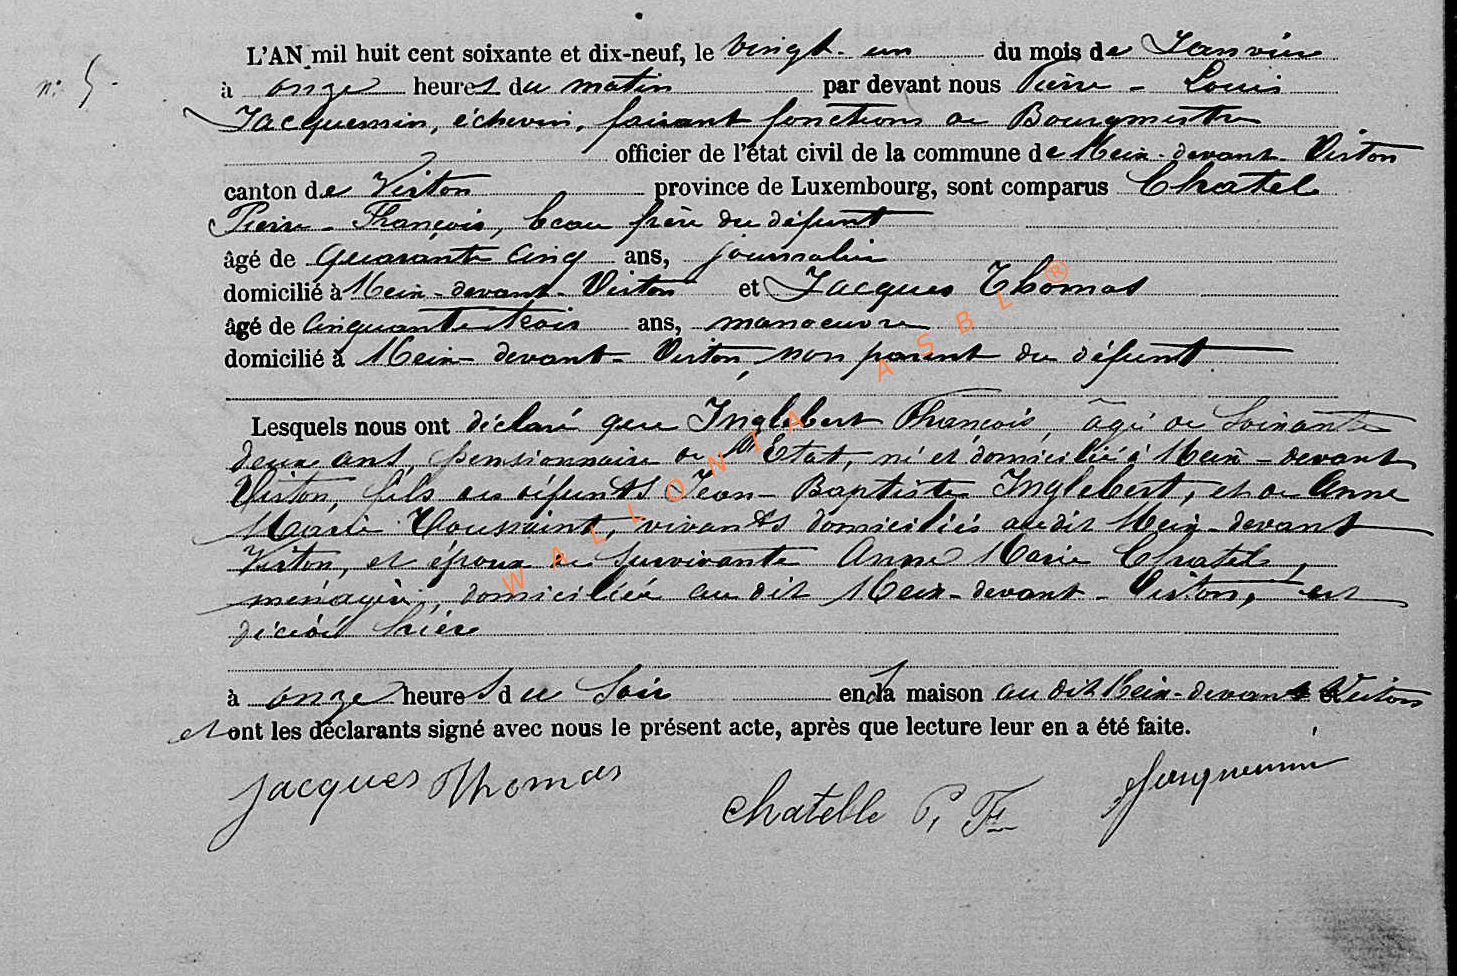 L'AN mil huit cent soixante et dix-neuf, le vingt-un du mois de Janvier
n° 5
à onze heures du matin par devant nous Pierre-Louis
Jacquemin, échevin, faisant fonctions de Bourgmestre
officier de l'état civil de la commune de Meix-devant-Virton
canton de Virton province de Luxembourg, sont comparus Chatel
Pierre-François, beau frère du défunt
âgé de quarante cinq ans, journalier
domicilié à Meix-devant-Virton et Jacques Thomas
âgé de cinquante trois ans, manoeuvre
domicilié à Meix-devant-Virton, non parent du défunt
Lesquels nous ont déclaré que Inglebert François, âgé de soixante
deux ans, pensionnaire de l'Etat, né et domicilié à Meix-devant
Virton, fils des défunts Jean-Baptiste Inglebert, et de Anne
Marie Toussaint, vivants domiciliés audit Meix-devant
Virton, et époux de survivante Anne Marie Chatel,
ménagère, domiciliée au dit Meix-devant-Virton, est
décédé hier
à onze heures du soir en la maison au dit Meix-devant Virton
et ont les déclarants signé avec nous le présent acte, après que lecture leur en a été faite.
Jacques Thomas
Chatelle P. F.
Jacquemin
WALLONIA ASBL ®